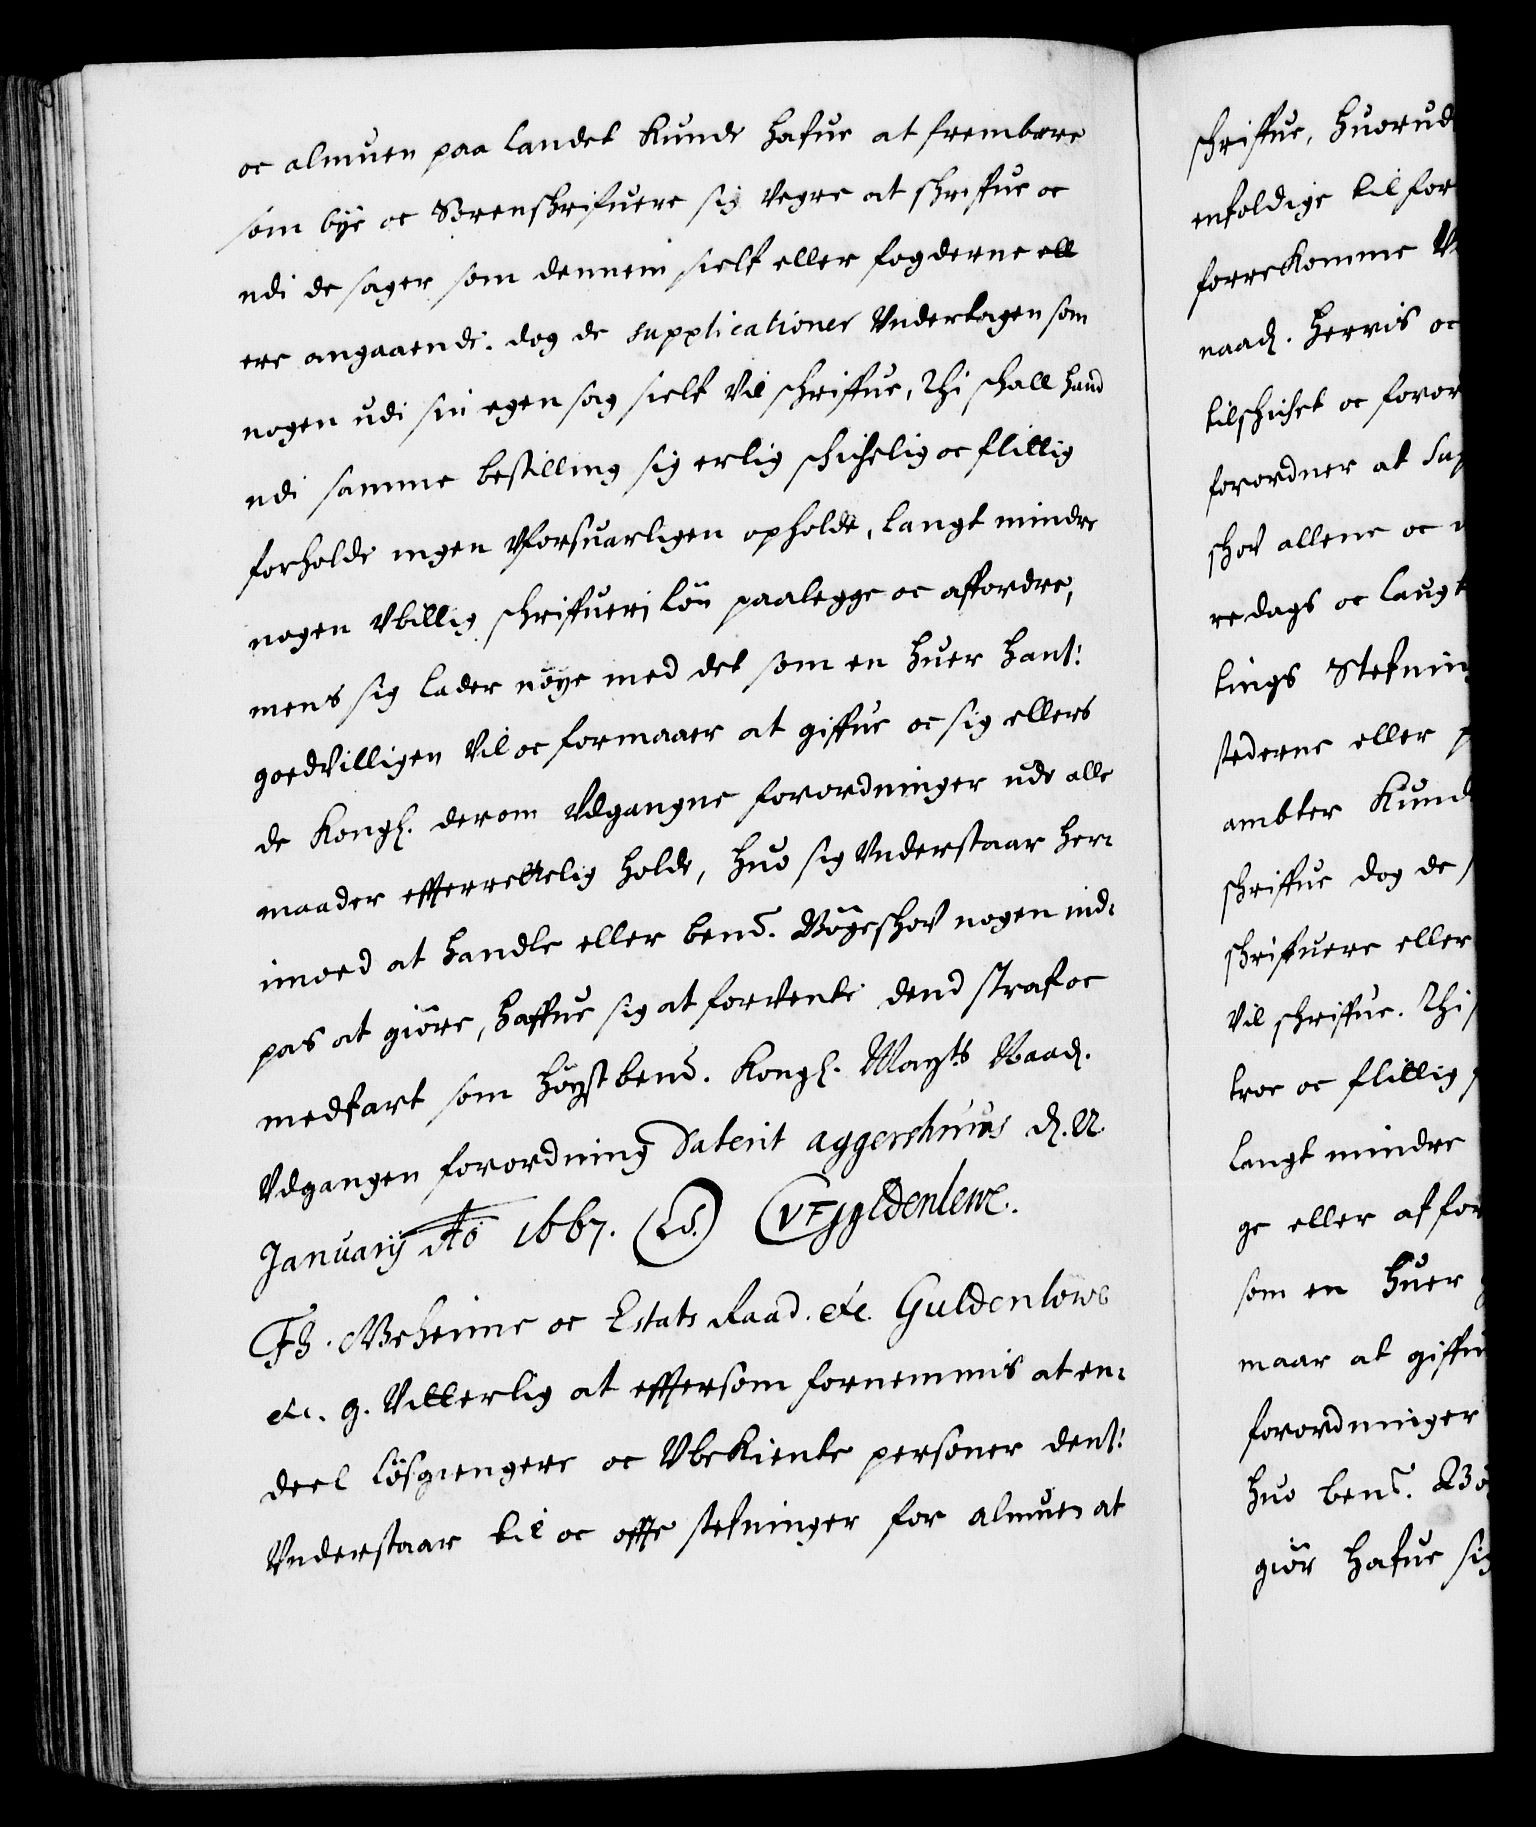 oc almuen paa landet Kunde hafue at frembære
som bÿe oc Sorenschrifuere sig Vegre at schriffue oc
udi de sager som dennem sielf eller fogderne ell
ere angaaende. dog de supplicationer Vndertagen som
nogen udi sin egen sag sielf Vil schriffue, Thi schall hand
udi samme bestilling sig erlig schichelig oc flittig
forholde ingen Vforsuarligen opholde, langt mindre
nogen Vbillig schriffuerj løn paalegge oc affordre,
mens sig lader nøÿe med det som en huer hant:
goedVilligen Vil oc formaaer at giffue oc sig ellers
de Kongl. derom Vdgangne forordninger udi alle
maader efferrettelig holde, huo sig Vnderstaar her:
imoed at handle eller bend. Bögeschov nogen ind:
pas at giøre, haffue sig at forvente dend straf oc
medfart som høÿstbend. Kongl. Maÿts Naad.
Vdgangen forordning Daterit aggershuus d. 22.
Januarij Ao 1667. (LS.) VFGÿldenlewe.
FB. Geheime oc Estats Raad. etc. Guldenlöwe
etc. g. Vitterlig at effersom fornemmis at en:
deel løsgiengere oc Vbekiente personer dent:
Vnderstaar til oc offte stefninger for almuen at
schriffue, huorud
enfoldige til for
forrekomme
naad. hervis oc
tilschichet oc foror
forordner at Sup
schov allene oc
re dags oc laugt
tings Stefning
stederne eller
ambter Kund
schriffue dog de
schrifuere eller
Vil schriffue. Thi
troe oc flittig
langt mindre
ge eller affor
som en huer
maar at giffu
forordninger
huo bend. Bö
giör hafue sig